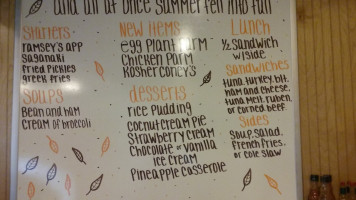 and all at once summer fell into fall
Starters
ramsey's app
Saganaki
fried pickles
greek fries
Soups
Bean and ham
cream of broccoli
New Items
egg plant parm
chicken parm
Kosher coney's
desserts
rice pudding
coconut cream pie
Strawberry cream
chocolate or vanilla
ice cream
pineapple casserole
Lunch
1/2 Sandwich
w/side
Sandwiches
tuna, turkey, blt,
ham and cheese,
tuna melt, ruben,
or corned beef.
Sides
soup, salad,
french fries,
or cole slaw